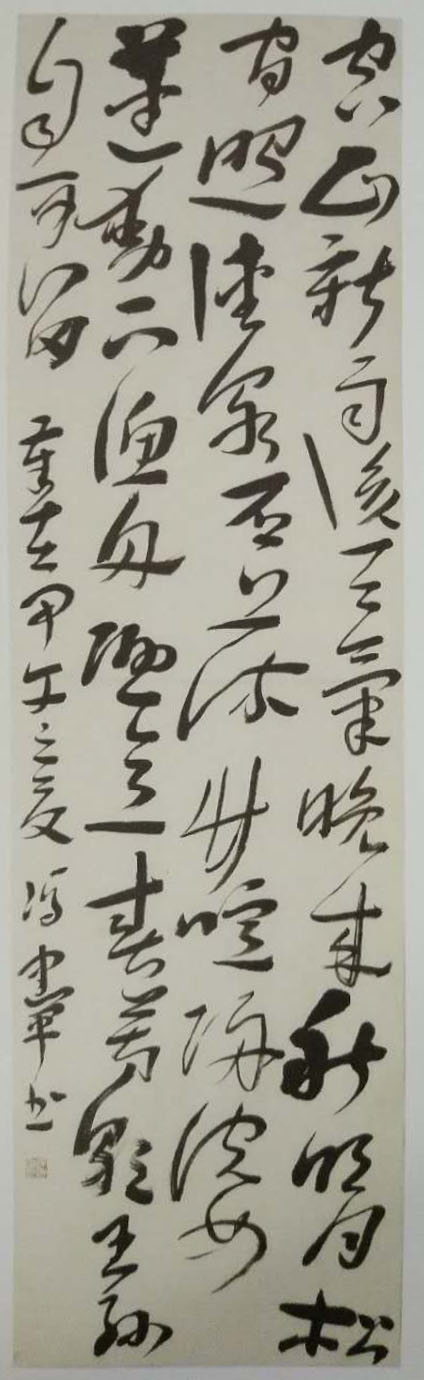 空山新雨後天氣晚來秋明月松
間照清泉石上流竹喧歸浣女
蓮動下漁舟隨意春芳歇王孫
自可留 歲在甲午之夏 馮平書